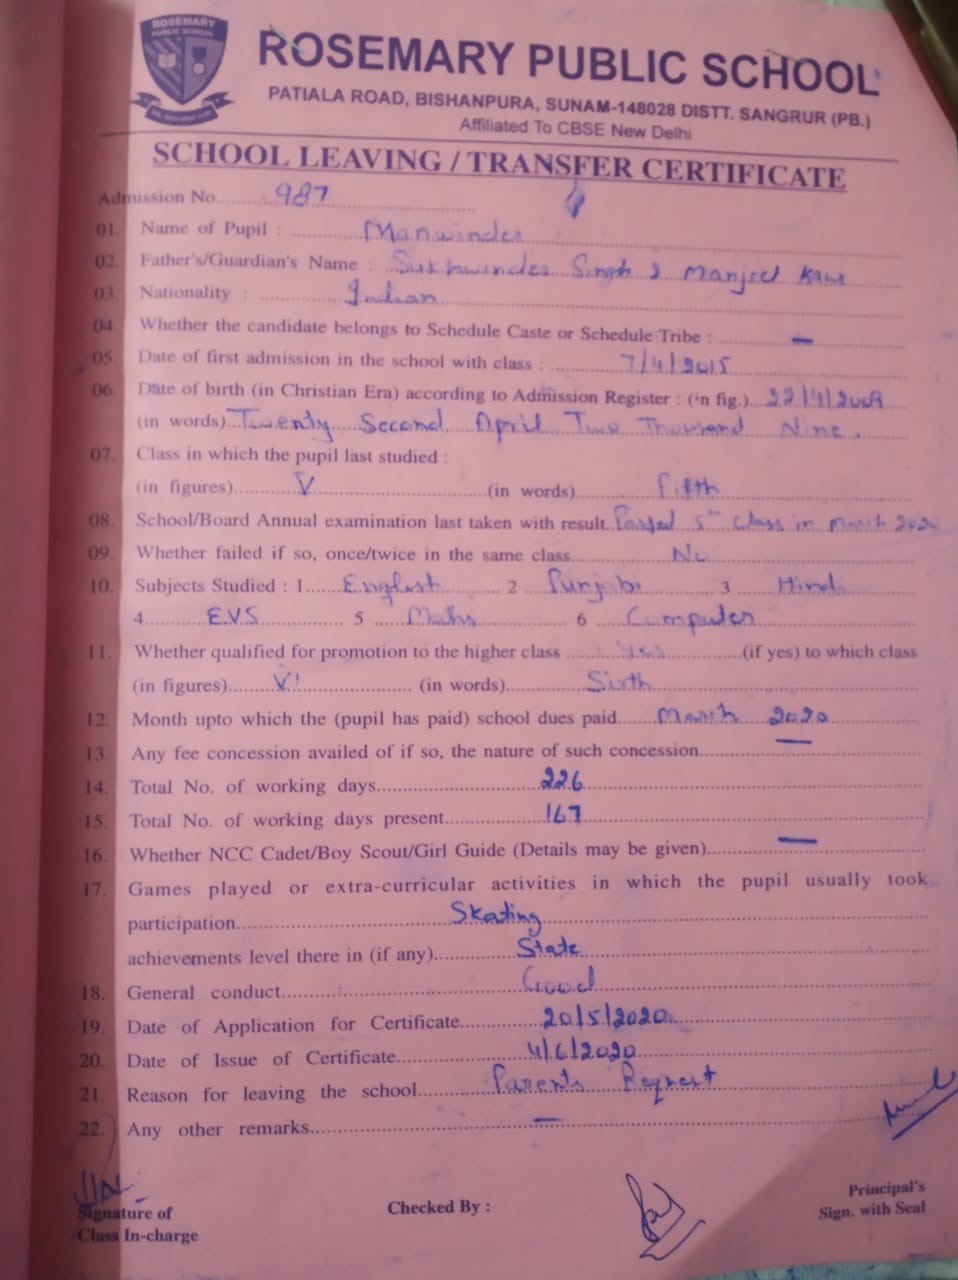 ROSEMARY
PUBLIC SCHOOL
ROSEMARY PUBLIC SCHOOL
PATIALA ROAD, BISHANPURA, SUNAM-148028 DISTT. SANGRUR (PB.)
Affiliated To CBSE New Delhi
SCHOOL LEAVING / TRANSFER CERTIFICATE
Admission No. 987
01. Name of Pupil : Manwinder
02. Father's/Guardian's Name : Sukhwinder Singh & Manjeet Kaur
03. Nationality : Indian
04. Whether the candidate belongs to Schedule Caste or Schedule Tribe : —
05. Date of first admission in the school with class : 7/4/2015
06. Date of birth (in Christian Era) according to Admission Register : (in fig.) 22/4/2009
(in words) Twenty Second April Two Thousand Nine.
07. Class in which the pupil last studied :
(in figures) V (in words) Fifth
08. School/Board Annual examination last taken with result Passed 5th Class in March 2020
09. Whether failed if so, once/twice in the same class No
10. Subjects Studied : 1 English 2 Punjabi 3 Hindi
4 E.V.S 5 Maths 6 Computer
11. Whether qualified for promotion to the higher class Yes (if yes) to which class
(in figures) VI (in words) Sixth
12. Month upto which the (pupil has paid) school dues paid March 2020
13. Any fee concession availed of if so, the nature of such concession —
14. Total No. of working days 226
15. Total No. of working days present 167
16. Whether NCC Cadet/Boy Scout/Girl Guide (Details may be given) —
17. Games played or extra-curricular activities in which the pupil usually took
participation Skating
achievements level there in (if any) State
18. General conduct Good
19. Date of Application for Certificate 20/5/2020
20. Date of Issue of Certificate 4/6/2020
21. Reason for leaving the school Parents Request
22. Any other remarks —
Signature of
Class In-charge
Checked By :
Principal's
Sign. with Seal